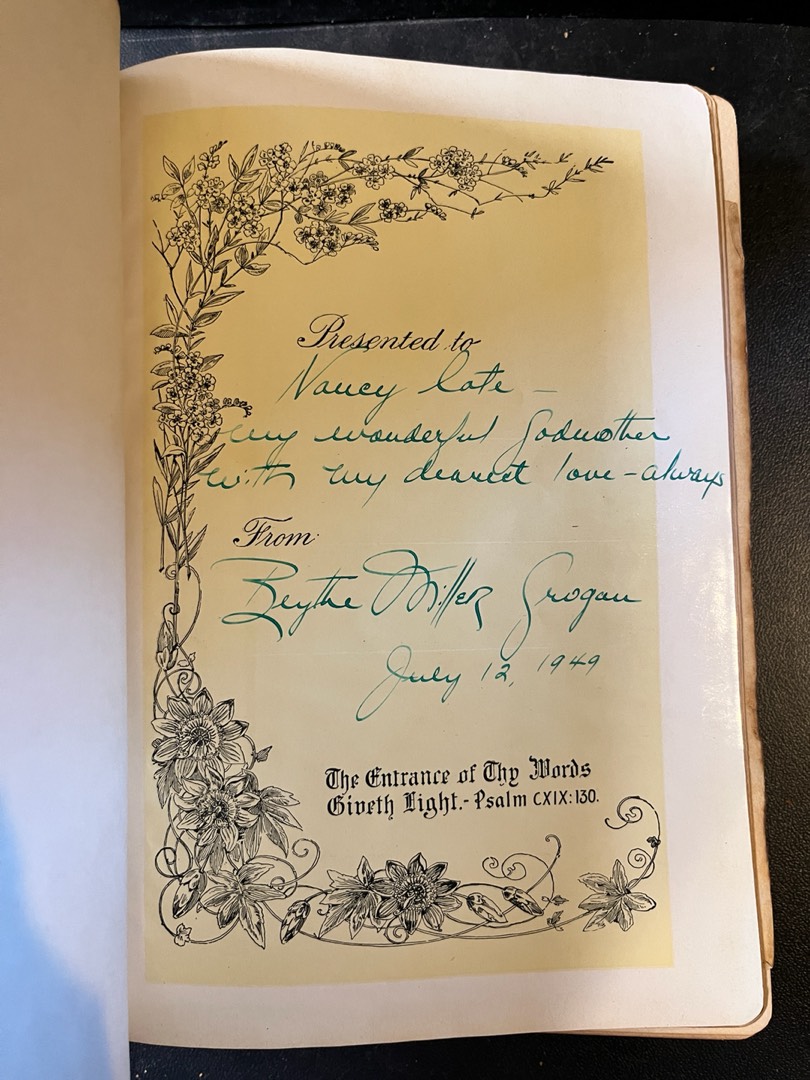 Presented to
Nancy Cate –
my wonderful Godmother
with my dearest love – always
From
Beythe Miller Grogan
July 12, 1949
The Entrance of Thy Words
Giveth Light.- Psalm CXIX:130.